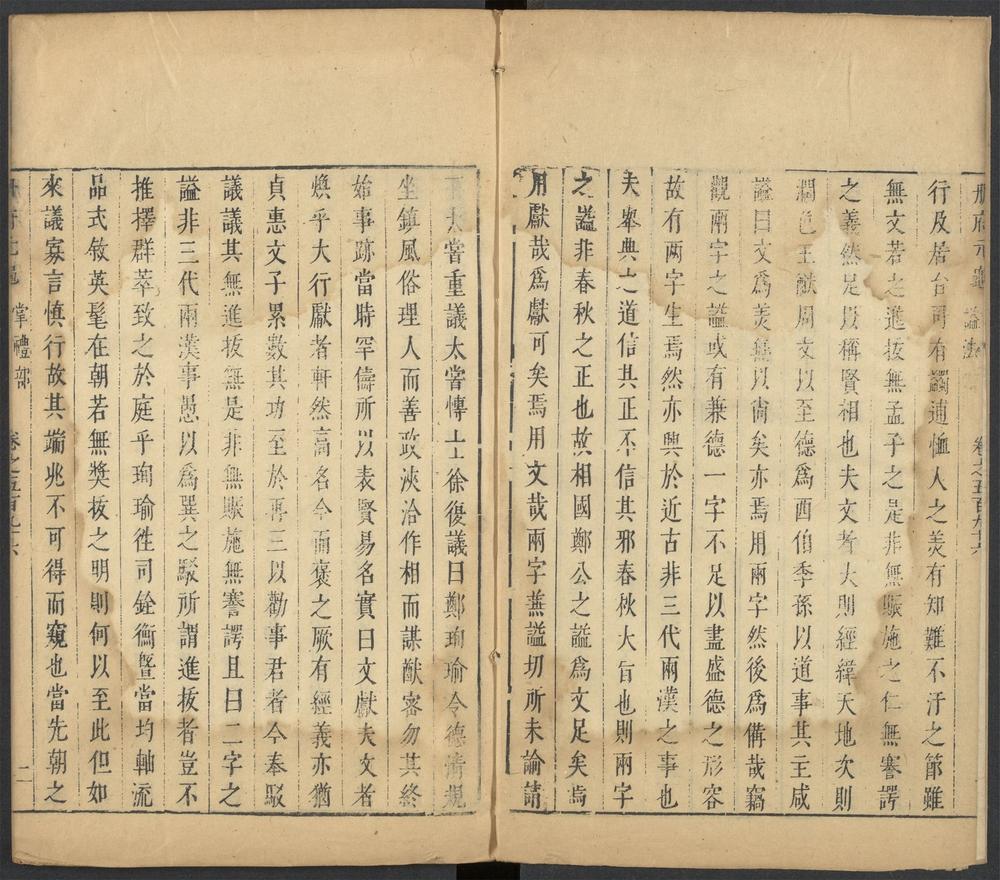 冊府元龜 謚法 卷之五百九十六
行及居台司有蠲逋恤人之美有知難不汙之節雖
無文若之進拔無孟子之是非無賑施之仁無謇諤
之義然足以稱賢相也夫文者大則經緯天地次則
潤色王猷周文以至德爲西伯季孫以道事其主咸
謚曰文爲美無以尚矣亦焉用兩字然後爲備哉竊
觀兩字之謚或有兼德一字不足以盡盛德之形容
故有兩字生焉然亦興於近古非三代兩漢之事也
夫舉典之道信其正不信其邪春秋大旨也則兩字
之謚非春秋之正也故相國鄭公之謚爲文足矣焉
用獻哉爲獻可矣焉用文哉兩字兼謚切所未諭請
下太嘗重議太嘗博士徐復議曰鄭珣瑜令德清規
坐鎮風俗理人而善政浹洽作相而謀猷密勿其終
始事跡當時罕儔所以表賢易名實曰文獻夫文者
煥乎大行獻者軒然高名今而褒之厥有經義亦猶
貞惠文子累數其功至於再三以勸事君者今奉駁
議議其無進拔無是非無賑施無謇諤且曰二字之
謚非三代兩漢事愚以爲異之駁所謂進拔者豈不
推擇群萃致之於庭乎珣瑜徃司銓衡曁當均軸流
品式敘英髦在朝若無奬拔之明則何以至此但如
來議寡言慎行故其端兆不可得而窺也當先朝之
冊府元龜 掌禮部 卷之五百九十六 二